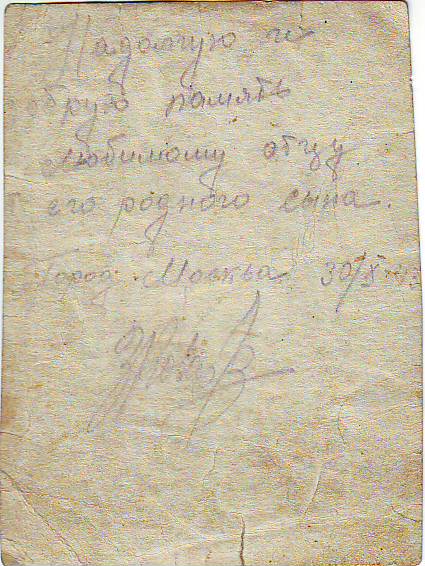 На долгую и
добрую память
любимому отцу
его родного сына.
Город Москва 30/X